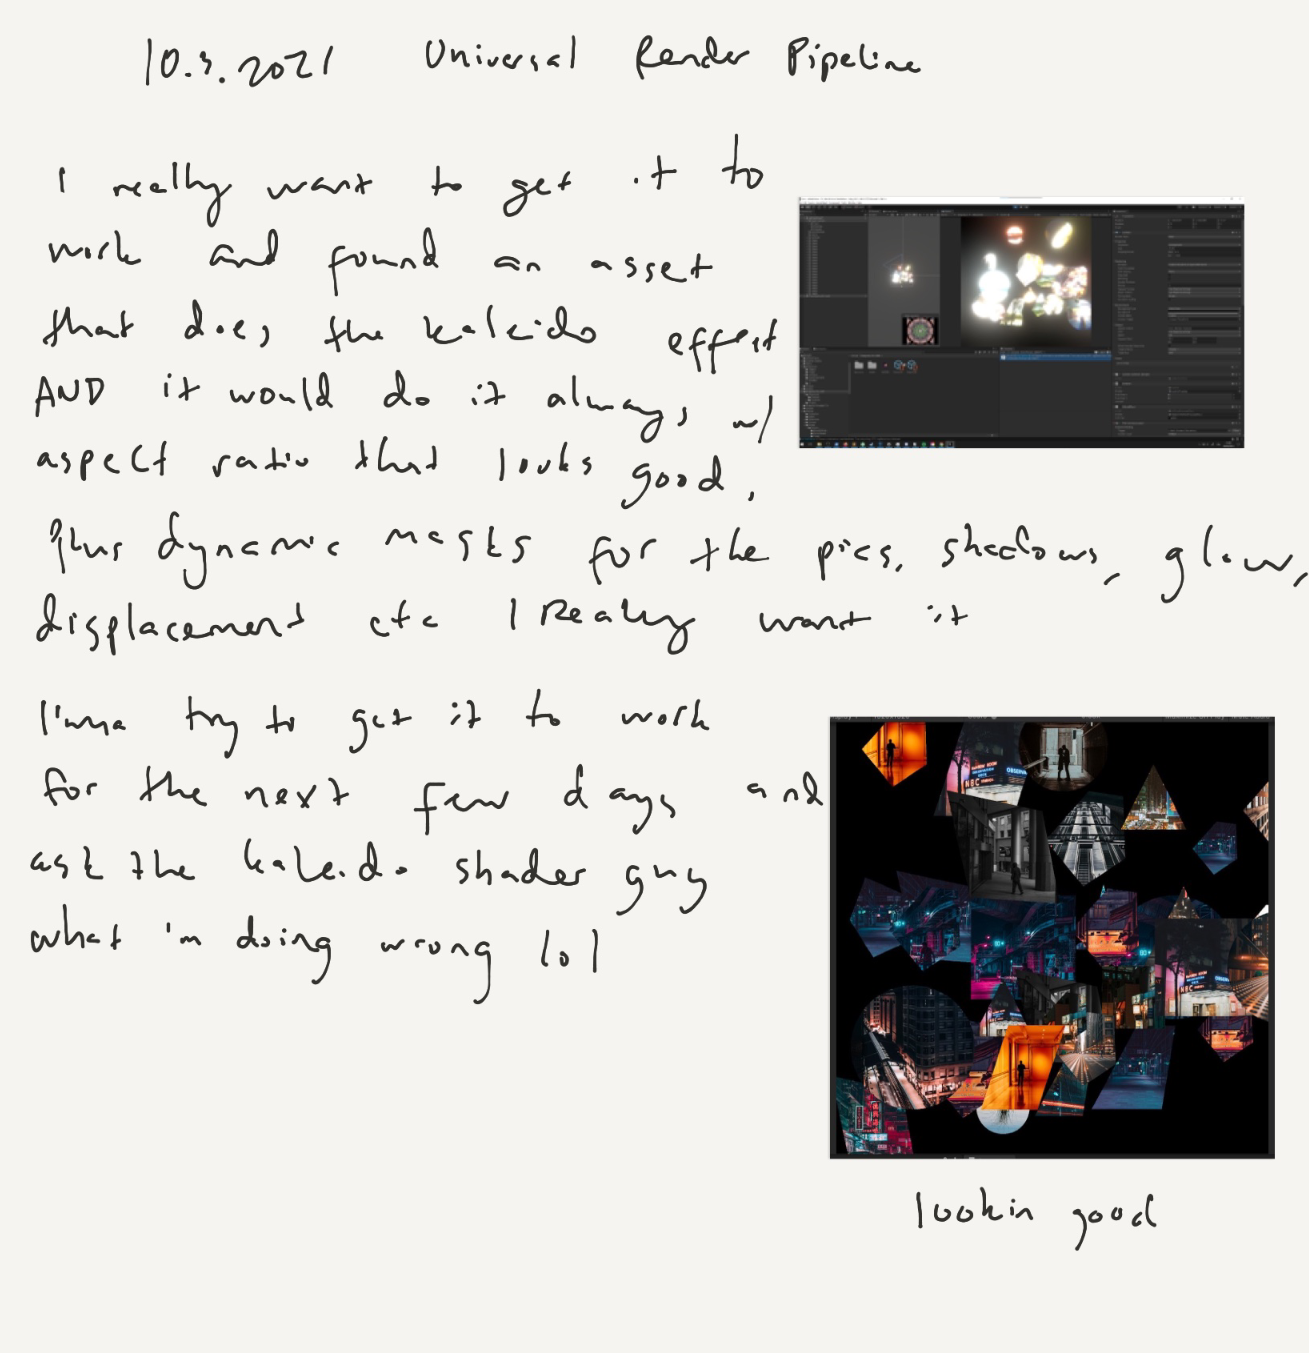 10.3.2021 Universal Render Pipeline
I really want to get it to
work and found an asset
that does the kaleido effect
AND it would do it always w/
aspect ratio that looks good,
plus dynamic masks for the pics, shadows, glow,
displacement etc I Really want it
I'mma try to get it to work
for the next few days and
ask the kaleido shader guy
what i'm doing wrong lol
NBC
NBC
lookin good